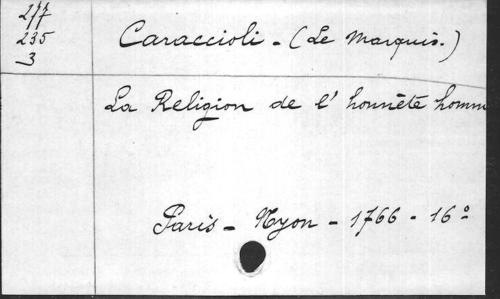 277
235
3
Caraccioli - (Le Marquis.)
La Religion de l' honnête homm
Paris - Nyon - 1766 - 16º